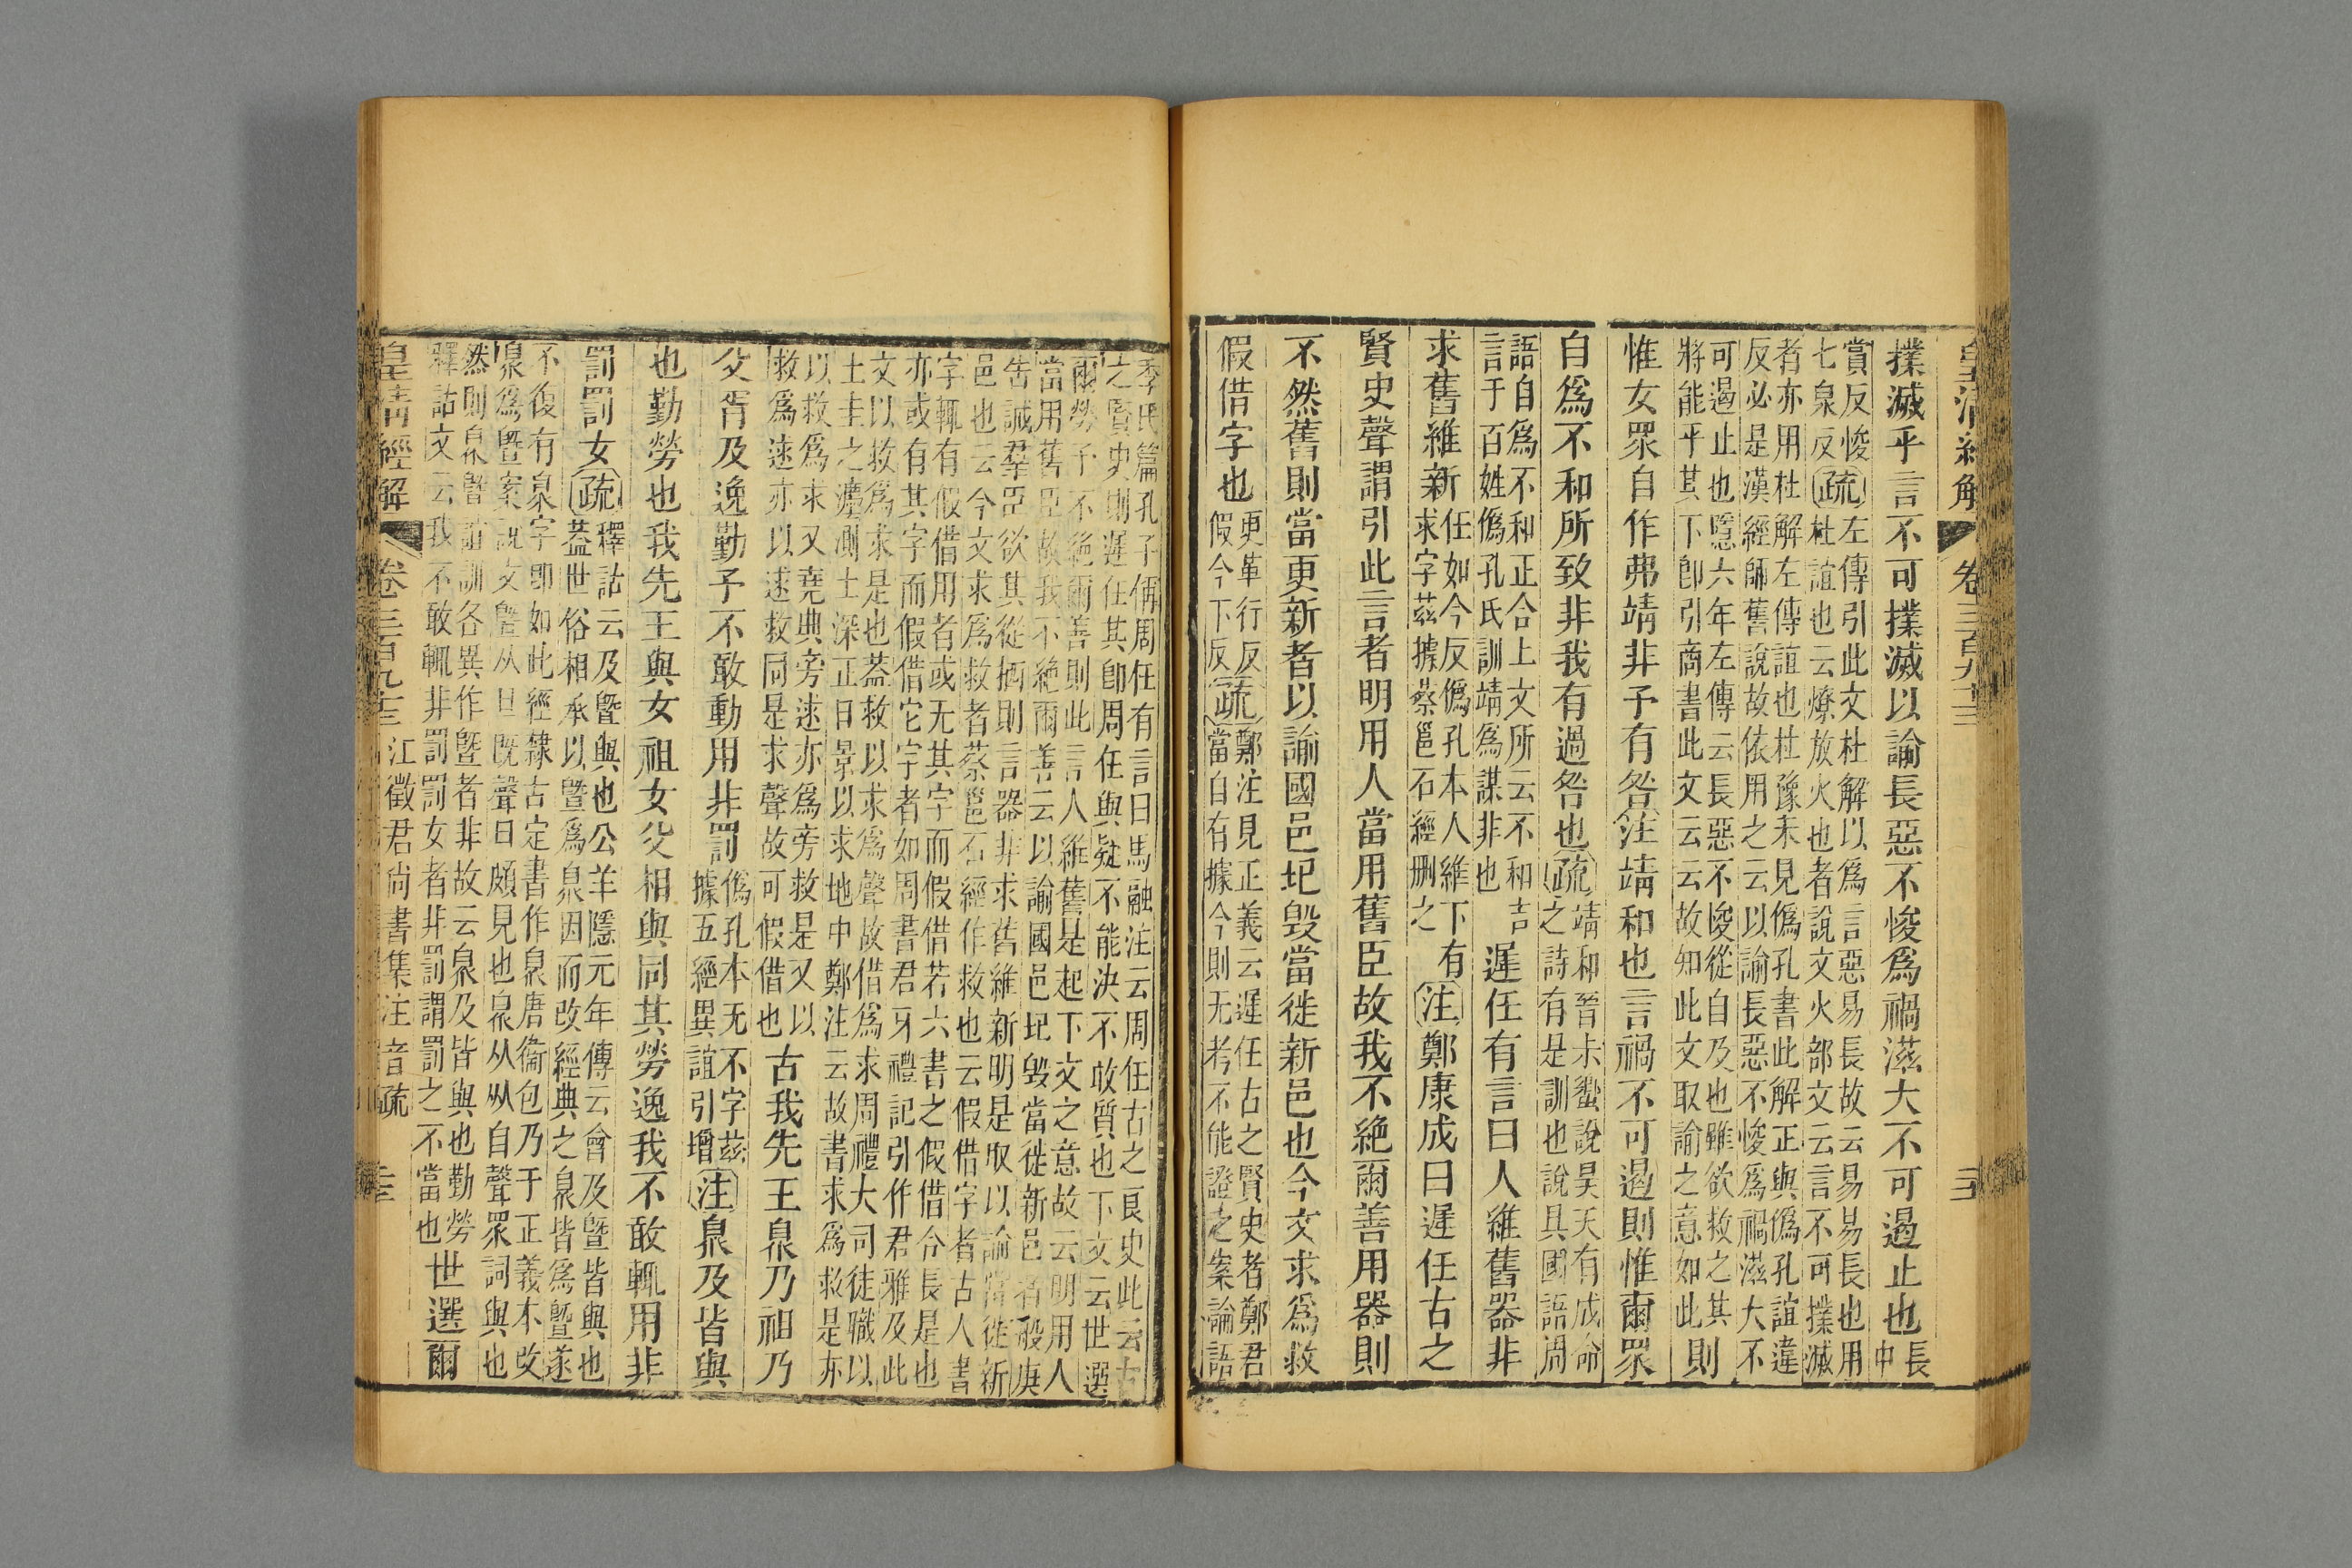 皇清經解 卷三百九十三 二十
撲滅乎言不可撲滅以諭長惡不悛爲禍滋大不可遏止也長中
賞反悛七泉反疏左傳引此文杜解以爲言惡易長故云易易長也用杜誼也云燎放火也者說文火部文云言不可撲滅
者亦用杜解左傳誼也杜豫未見僞孔書此解正與僞孔誼違反必是漢經師舊說故依用之云以諭長惡不悛爲禍滋大不
可遏止也隱六年左傳云長惡不悛從自及也雖欲救之其將能乎其下卽引商書此文云云故知此文取諭之意如此則
惟女眾自作弗靖非予有咎注靖和也言禍不可遏則惟爾眾
自爲不和所致非我有過咎也疏靖和晉未蠻說昊天有成命之詩有是訓也說具國語周
語自爲不和正合上文所云不和吉言于百姓僞孔氏訓靖爲謀非也遲任有言曰人維舊器非
求舊維新任如今反僞孔本人維下有求字茲據蔡邕石經刪之注鄭康成曰遲任古之
賢史聲謂引此言者明用人當用舊臣故我不絕爾善用器則
不然舊則當更新者以諭國邑圯毀當徙新邑也今文求爲救
假借字也更革行反假今下反疏鄭注見正義云遲任古之賢史者鄭君當自有據今則无考不能證之案論語
季氏篇孔子偁周任有言曰馬融注云周任古之良史此云古之賢史則遲任其卽周任與疑不能決不敢質也下文云世選
爾勞予不絕爾善則此言人維舊是起下文之意故云明用人當用舊臣故我不絕爾善云以諭國邑圯毀當徙新邑者般庚
告誡羣臣欲其從徙則言器非求舊維新明是取以諭當徙新邑也云今文求爲救者蔡邕石經作救也云假借字者古人書
字輒有假借用者或无其字而假借若六書之假借令長是也亦或有其字而假借它字者如周書君牙禮記引作君雅及此
文以救爲求是也蓋救以求爲聲故借爲求周禮大司徒職以土圭之灋測土深正日景以求地中鄭注云故書求爲救是亦
以救爲求又堯典旁逑亦爲旁救是又以救爲逑亦以逑救同是求聲故可假借也古我先王臮乃祖乃
父胥及逸勤予不敢動用非罰僞孔本无不字茲據五經異誼引增注臮及皆與
也勤勞也我先王與女祖女父相與同其勞逸我不敢輒用非
罰罰女疏釋詁云及曁與也公羊隱元年傳云會及曁皆與也蓋世俗相承以曁爲臮因而改經典之臮皆爲曁遂
不復有臮字卽如此經隸古定書作臮唐衞包乃于正義本改臮爲曁案說文曁从旦旣聲曰頗見也臮从㐺自聲眾詞與也
然則臮曁詁訓各異作曁者非故云臮及皆與也勤勞釋詁文云我不敢輒非罰罰女者非罰謂罰之不當也世選爾
皇清經解 卷三百九十三 江徵君尚書集注音疏 二十三